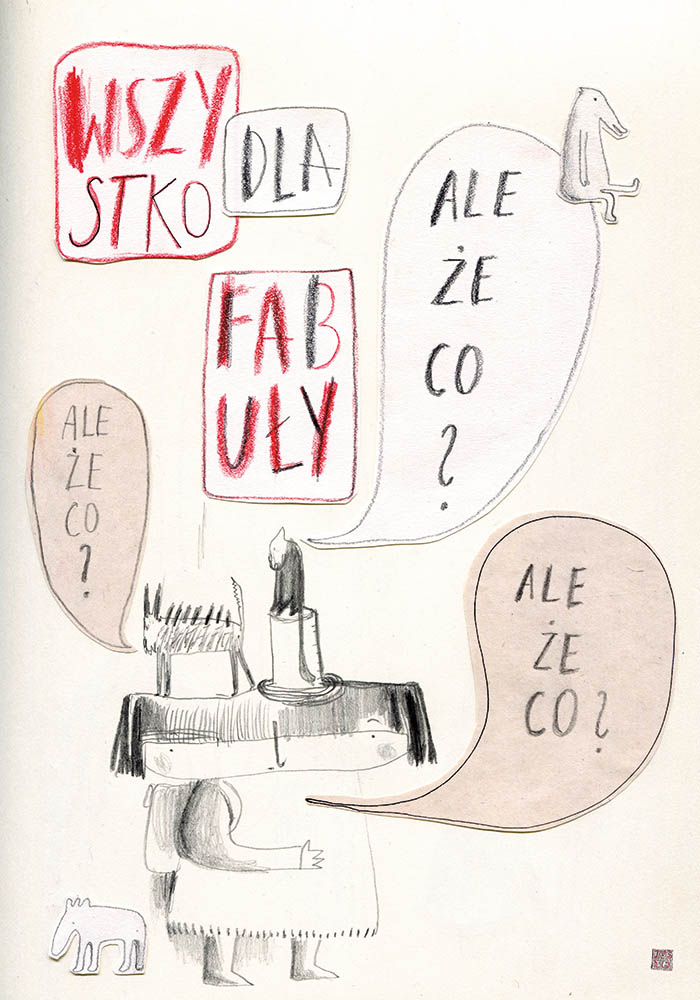 WSZY
STKO
DLA
FAB
UŁY
ALE
ŻE
CO
?
ALE
ŻE
CO
?
ALE
ŻE
CO?